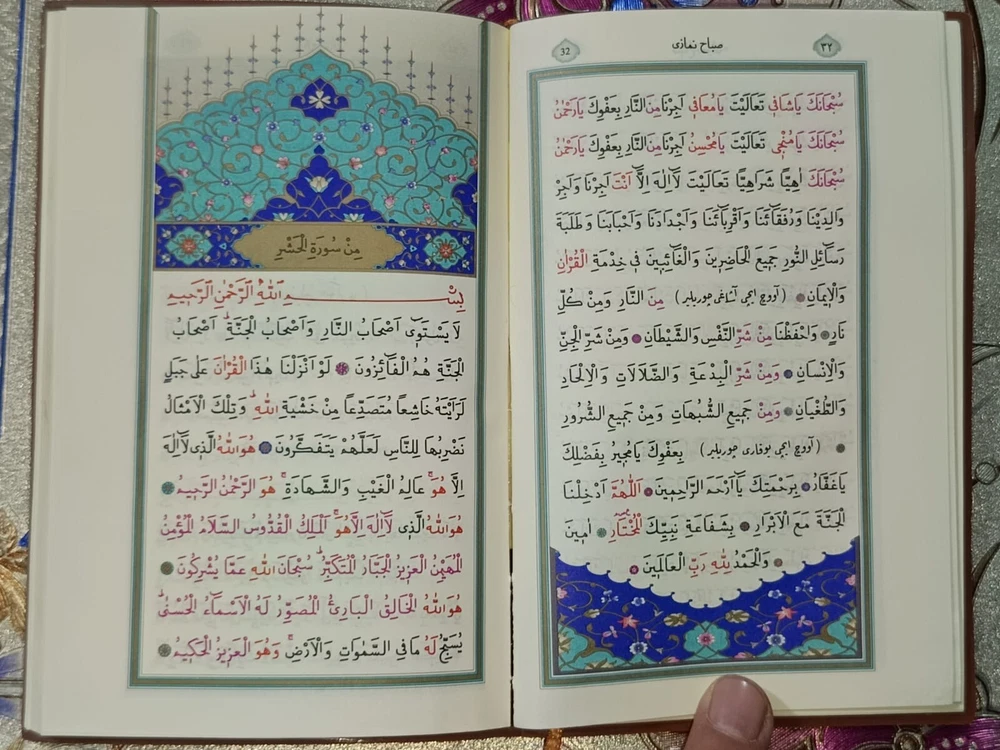 ٣٢
صباح نمازى
32
سُبْحَانَكَ يَاشَافِى تَعَالَيْتَ يَامُعَافِى اَجِرْنَا مِنَ النَّارِ بِعَفْوِكَ يَارَحْمٰنُ
سُبْحَانَكَ يَامُنْجِى تَعَالَيْتَ يَامُحْسِنُ اَجِرْنَا مِنَ النَّارِ بِعَفْوِكَ يَارَحْمٰنُ
سُبْحَانَكَ اٰهِيًّا شَرَاهِيًّا تَعَالَيْتَ لَٓا اِلٰهَ اِلَّٓا اَنْتَ اَجِرْنَا وَاَجِرْ
وَالِدِيْنَا وَرُفَقَائَنَا وَاَقْرِبَٓائَنَا وَاَجْدَادَنَا وَاَحْبَابَنَا وَطَلَبَةَ
رَسَائِلِ النُّورِ جَمِيعَ الْحَاضِرِينَ وَالْغَٓائِبِينَ فِى خِدْمَةِ الْقُرْاٰنِ
وَالْاِيمَانِ (آووچ ايچى آشاغى چوريلير) مِنَ النَّارِ وَمِنْ كُلِّ
نَارٍ وَاحْفَظْنَا مِنْ شَرِّ النَّفْسِ وَالشَّيْطَانِ وَمِنْ شَرِّ الْجِنِّ
وَالْاِنْسَانِ وَمِنْ شَرِّ الْبِدْعَةِ وَالضَّلَالَاتِ وَالْاِلْحَادِ
وَالطُّغْيَانِ وَمِنْ جَمِيعِ الشُّبُهَاتِ وَمِنْ جَمِيعِ الشُّرُورِ
(آووچ ايچى يوقارى چوريلير) بِعَفْوِكَ يَامُجِيرُ بِفَضْلِكَ
يَاغَفَّارُ بِرَحْمَتِكَ يَٓا اَرْحَمَ الرَّاحِمِينَ اَللّٰهُمَّ اَدْخِلْنَا
الْجَنَّةَ مَعَ الْاَبْرَارِ بِشَفَاعَةِ نَبِيِّكَ الْمُخْتَارِ اٰمِينَ
وَالْحَمْدُ لِلّٰهِ رَبِّ الْعَالَمِينَ
مِنْ سُورَةِ الْحَشْرِ
بِسْمِ اللّٰهِ الرَّحْمٰنِ الرَّحِيمِ
لَا يَسْتَوِٓى اَصْحَابُ النَّارِ وَاَصْحَابُ الْجَنَّةِۜ اَصْحَابُ
الْجَنَّةِ هُمُ الْفَٓائِزُونَ لَوْ اَنْزَلْنَا هٰذَا الْقُرْاٰنَ عَلٰى جَبَلٍ
لَرَاَيْتَهُ خَاشِعًا مُتَصَدِّعًا مِنْ خَشْيَةِ اللّٰهِۜ وَتِلْكَ الْاَمْثَالُ
نَضْرِبُهَا لِلنَّاسِ لَعَلَّهُمْ يَتَفَكَّرُونَ هُوَ اللّٰهُ الَّذِى لَٓا اِلٰهَ
اِلَّا هُوَۚ عَالِمُ الْغَيْبِ وَالشَّهَادَةِۚ هُوَ الرَّحْمٰنُ الرَّحِيمُ
هُوَ اللّٰهُ الَّذِى لَٓا اِلٰهَ اِلَّا هُوَۚ اَلْمَلِكُ الْقُدُّوسُ السَّلَامُ الْمُؤْمِنُ
الْمُهَيْمِنُ الْعَزِيزُ الْجَبَّارُ الْمُتَكَبِّرُۜ سُبْحَانَ اللّٰهِ عَمَّا يُشْرِكُونَ
هُوَ اللّٰهُ الْخَالِقُ الْبَارِئُ الْمُصَوِّرُ لَهُ الْاَسْمَٓاءُ الْحُسْنٰىۜ
يُسَبِّحُ لَهُ مَا فِى السَّمٰوَاتِ وَالْاَرْضِۚ وَهُوَ الْعَزِيزُ الْحَكِيمُ